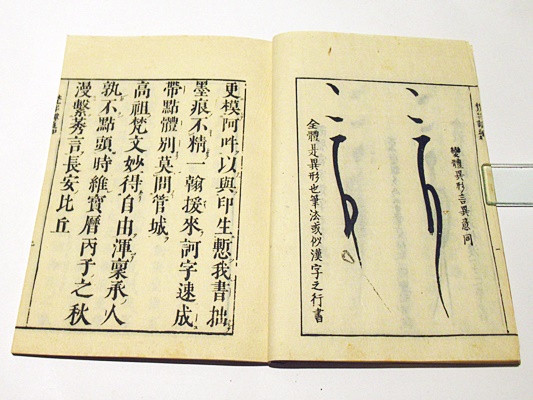 變體異形言異意同
全體是異形也筆法或似漢字之行書
更模阿吽以與印生慙我書拙
墨痕不精一翰援來訶字速成
帶點體別莫問管城
高祖梵文妙得自由渾稟承人
孰不點頭時維寶曆丙子之秋
漫繫莠言長安比丘